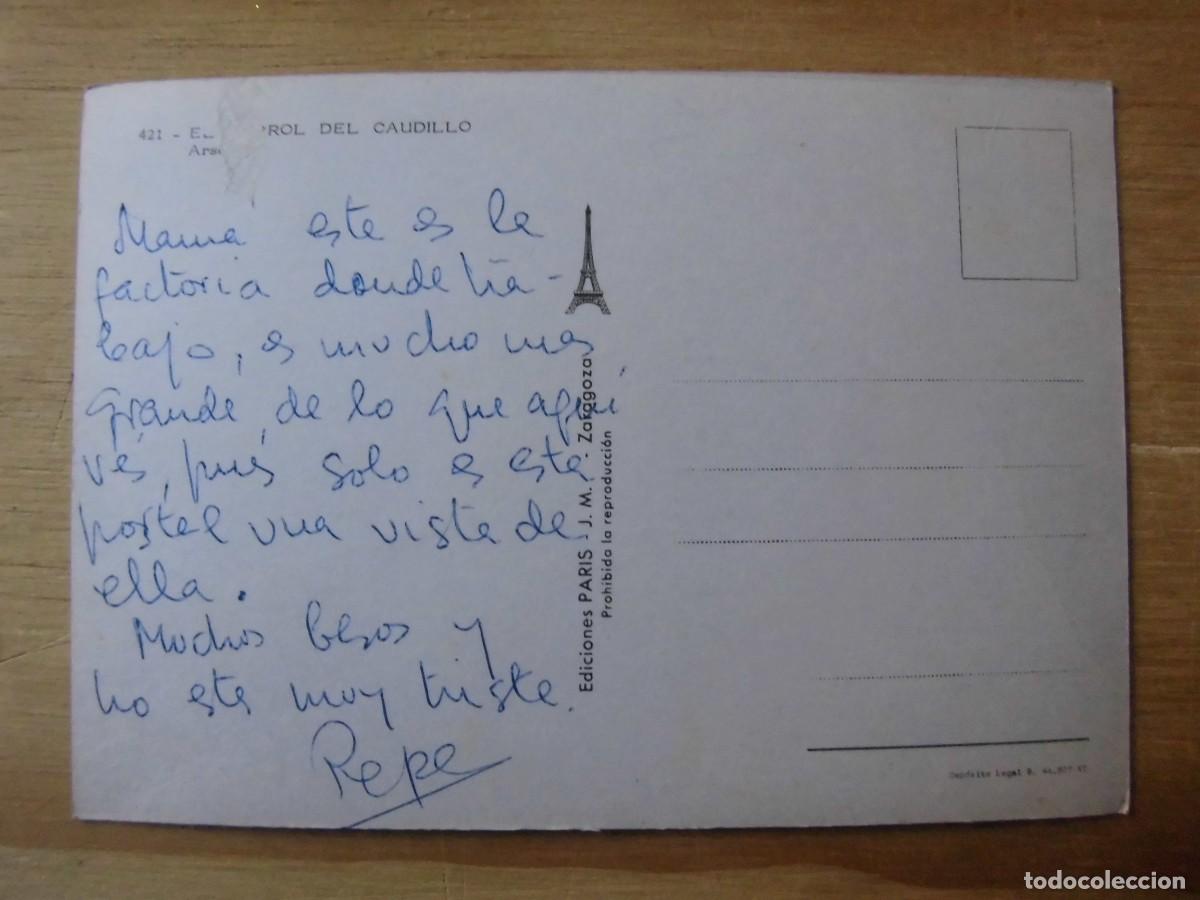 421 - EL FERROL DEL CAUDILLO
Arse
Mamá este es la
factoria donde tra-
bajo, es mucho mas
grande, de lo que aqui
ves, pues solo es esta
postal una vista de
ella.
Muchos besos y
no estes muy triste.
Pepe
Ediciones PARIS - J. M. - Zaragoza
Prohibida la reproducción
Depósito Legal B.
todocoleccion